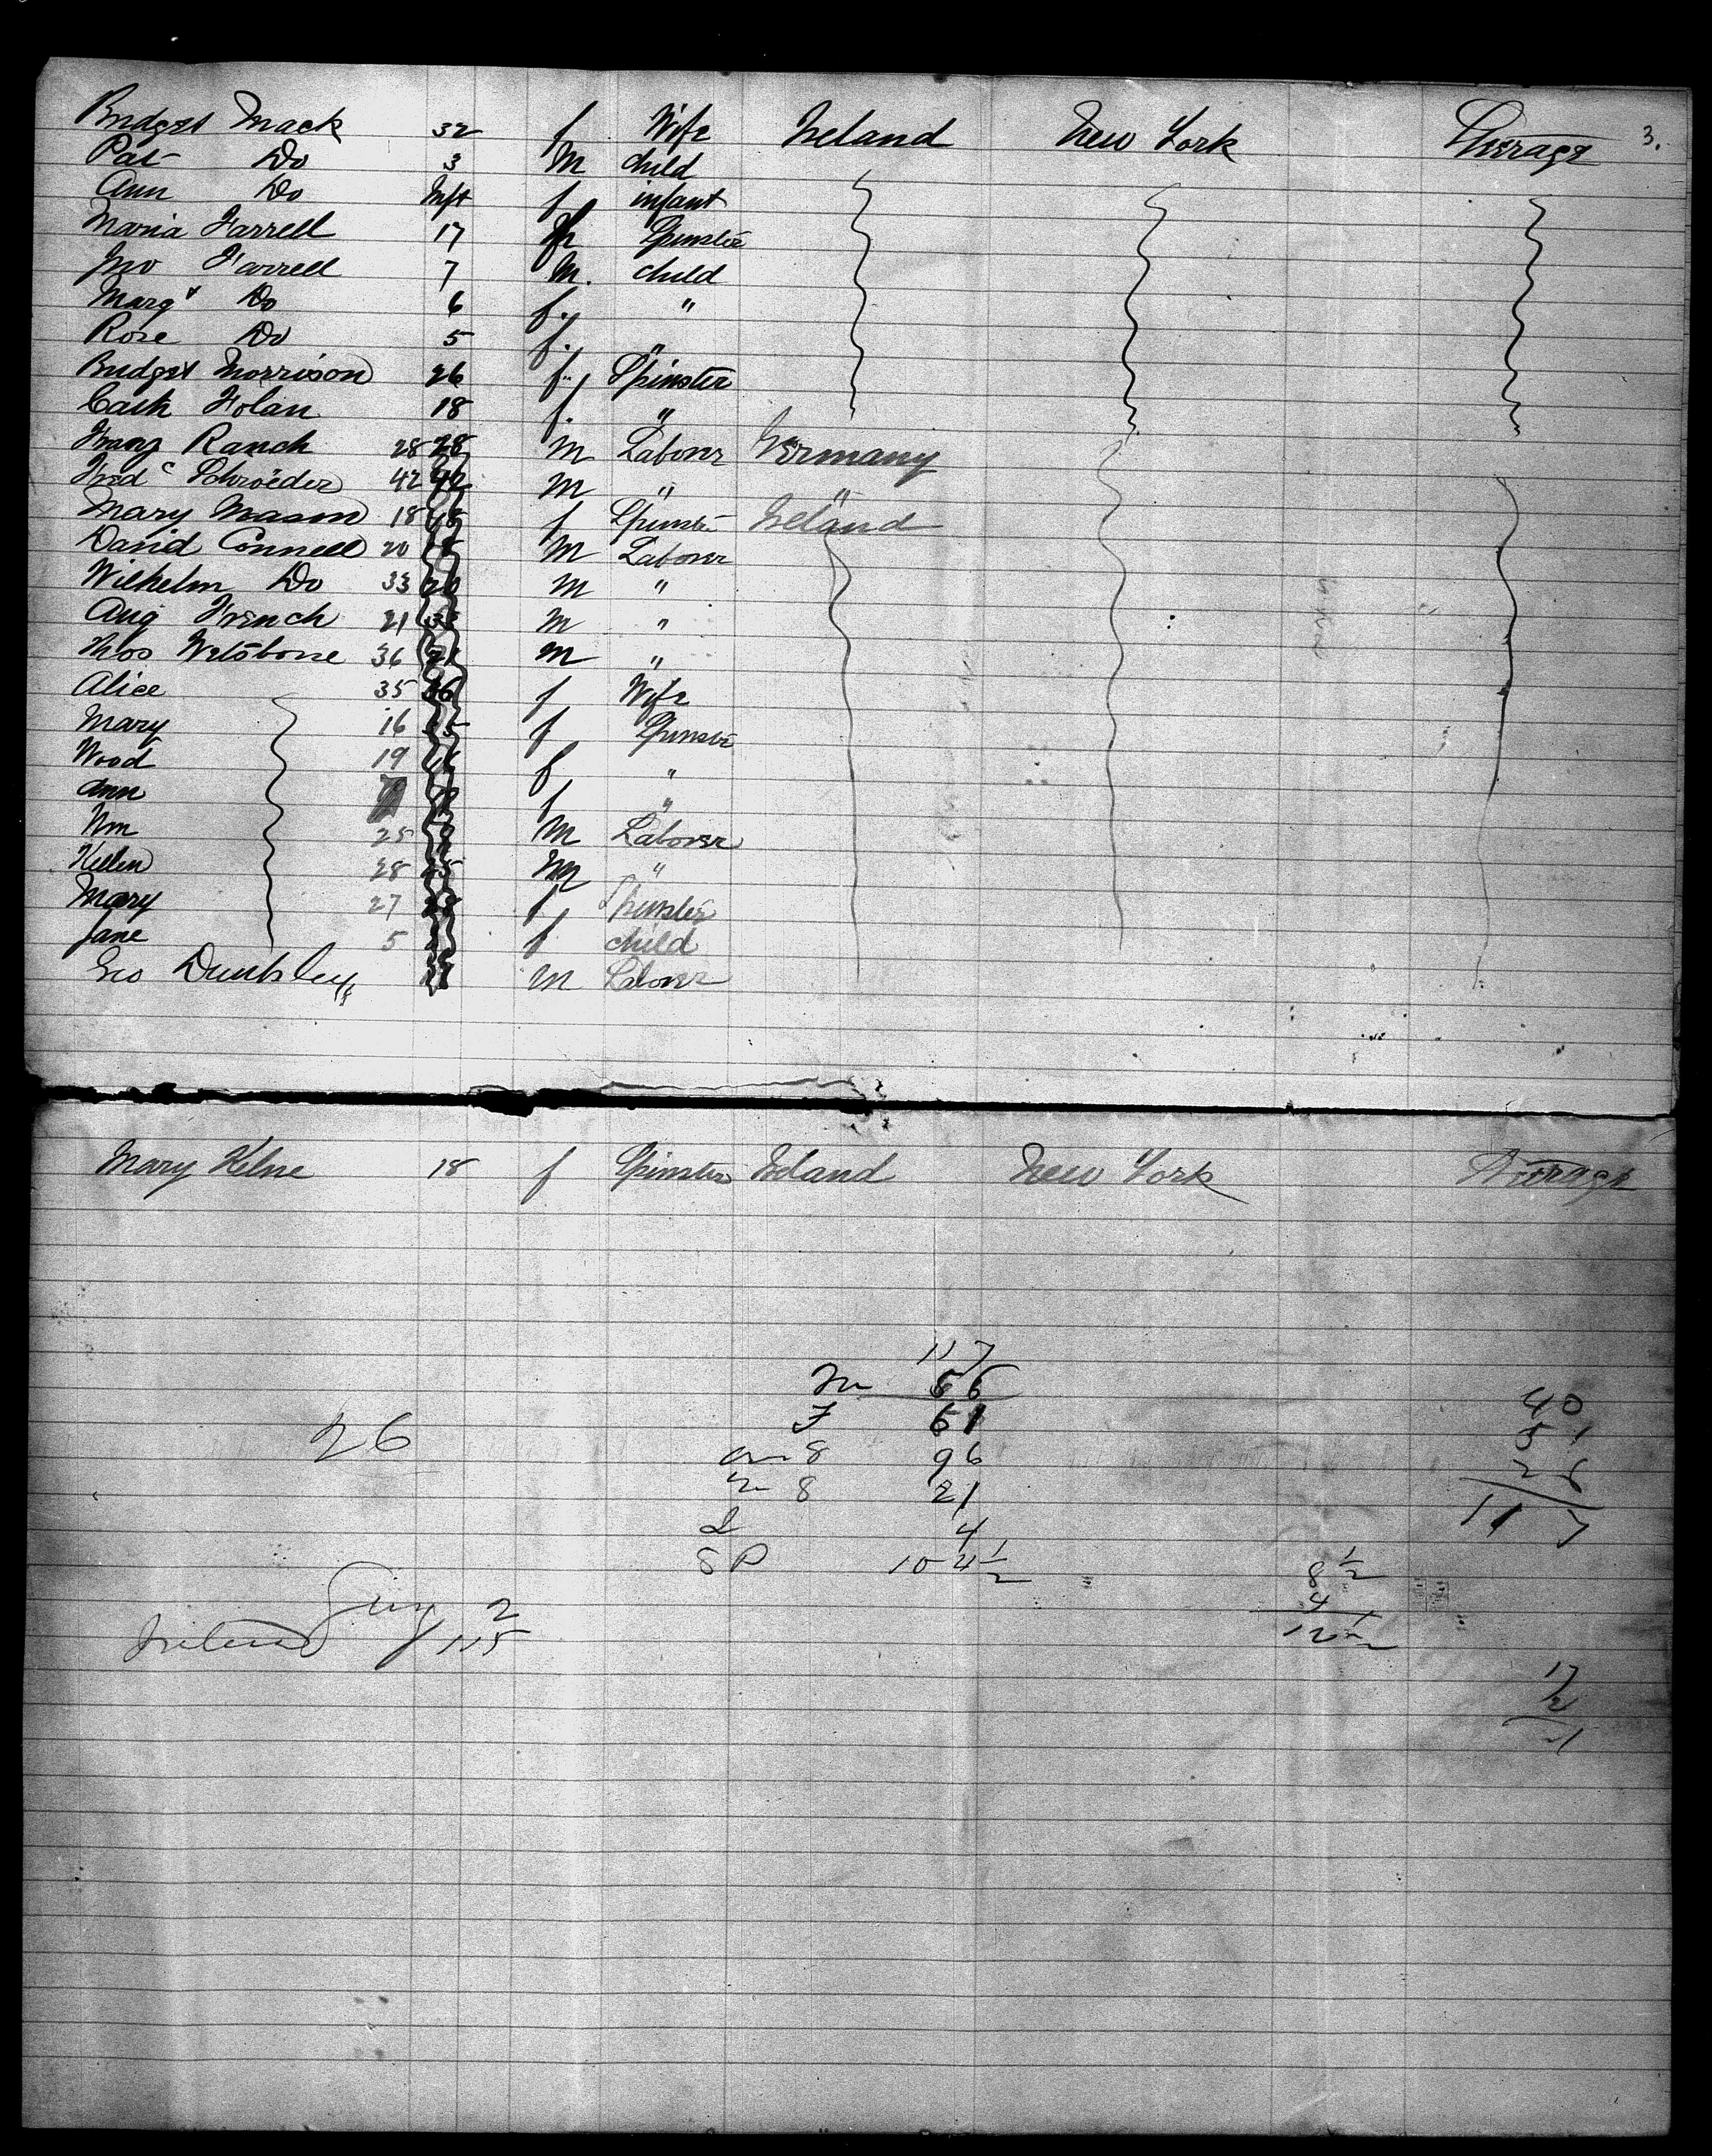 Bridget Mack 32 f Wife Ireland New York Steerage 3.
Pat Do 3 M child
Ann Do Inft f infant
Maria Farrell 17 f Spinster
Jno Farrell 7 M. child
Margt Do 6 f. "
Rose Do 5 f. "
Bridget Morrison 26 f. Spinster
Cath Holan 18 f. "
Franz Ranch 28 28 M Laborer Germany
Fredc Schroëder 42 42 M " "
Mary Mason 18 f Spinster Ireland
David Connell 20 M Laborer
Wilhelm Do 33 20 M "
Aug French 21 33 M "
Thos 36 21 M "
Alice 35 36 f Wife
Mary 16 35 f Spinster
Wood 19 16 f "
Ann f "
Wm 25 M Laborer
Hellen 28 25 M "
Mary 27 28 f Spinster
Jane 5 f child
Geo M Laborer
Mary Kelne 18 f Spinster Ireland New York Steerage
117
M 56
F 61
26
8 96
8 21
4
S P 104 1/2
40
51
26
117
8 1/2
4
12 1/2
Ger 2
Ireland 115